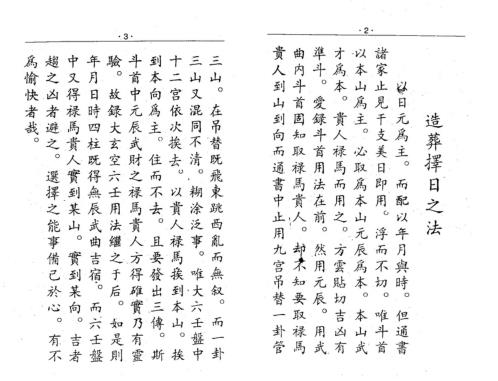 ·2·
造葬擇日之法
以日元爲主。而配以年月與時。但通書
諸家止見干支美日即用。浮而不切。唯斗首
以本山爲主。必取爲本山元辰爲本。本山武
才爲本。貴人祿馬而用之。方雲貼切吉凶有
準斗。愛錄斗首用法在前。然用元辰。用武
曲内斗首固知取祿馬貴人。却不知要取祿馬
貴人到山到向而通書中止用九宫吊替一卦管
·3·
三山。在吊替既飛東跳西亂而無叙。而一卦
三山又混同不清。糊涂泛事。唯大六壬盤中
十二宫依次挨去。以貴人祿馬挨到本山。挨
到本向爲主。住而不去。且要發出三傳。斯
斗首中元辰武財之祿馬貴人方得確實乃有靈
驗。故錄大玄空六壬用法繼之于后。如是則
年月日時四柱既得無辰武曲吉宿。而六壬盤
中又得祿馬貴人實到某山。實到某向。吉者
趨之凶者避之。選擇之能事備已於心。有不
爲愉快者哉。